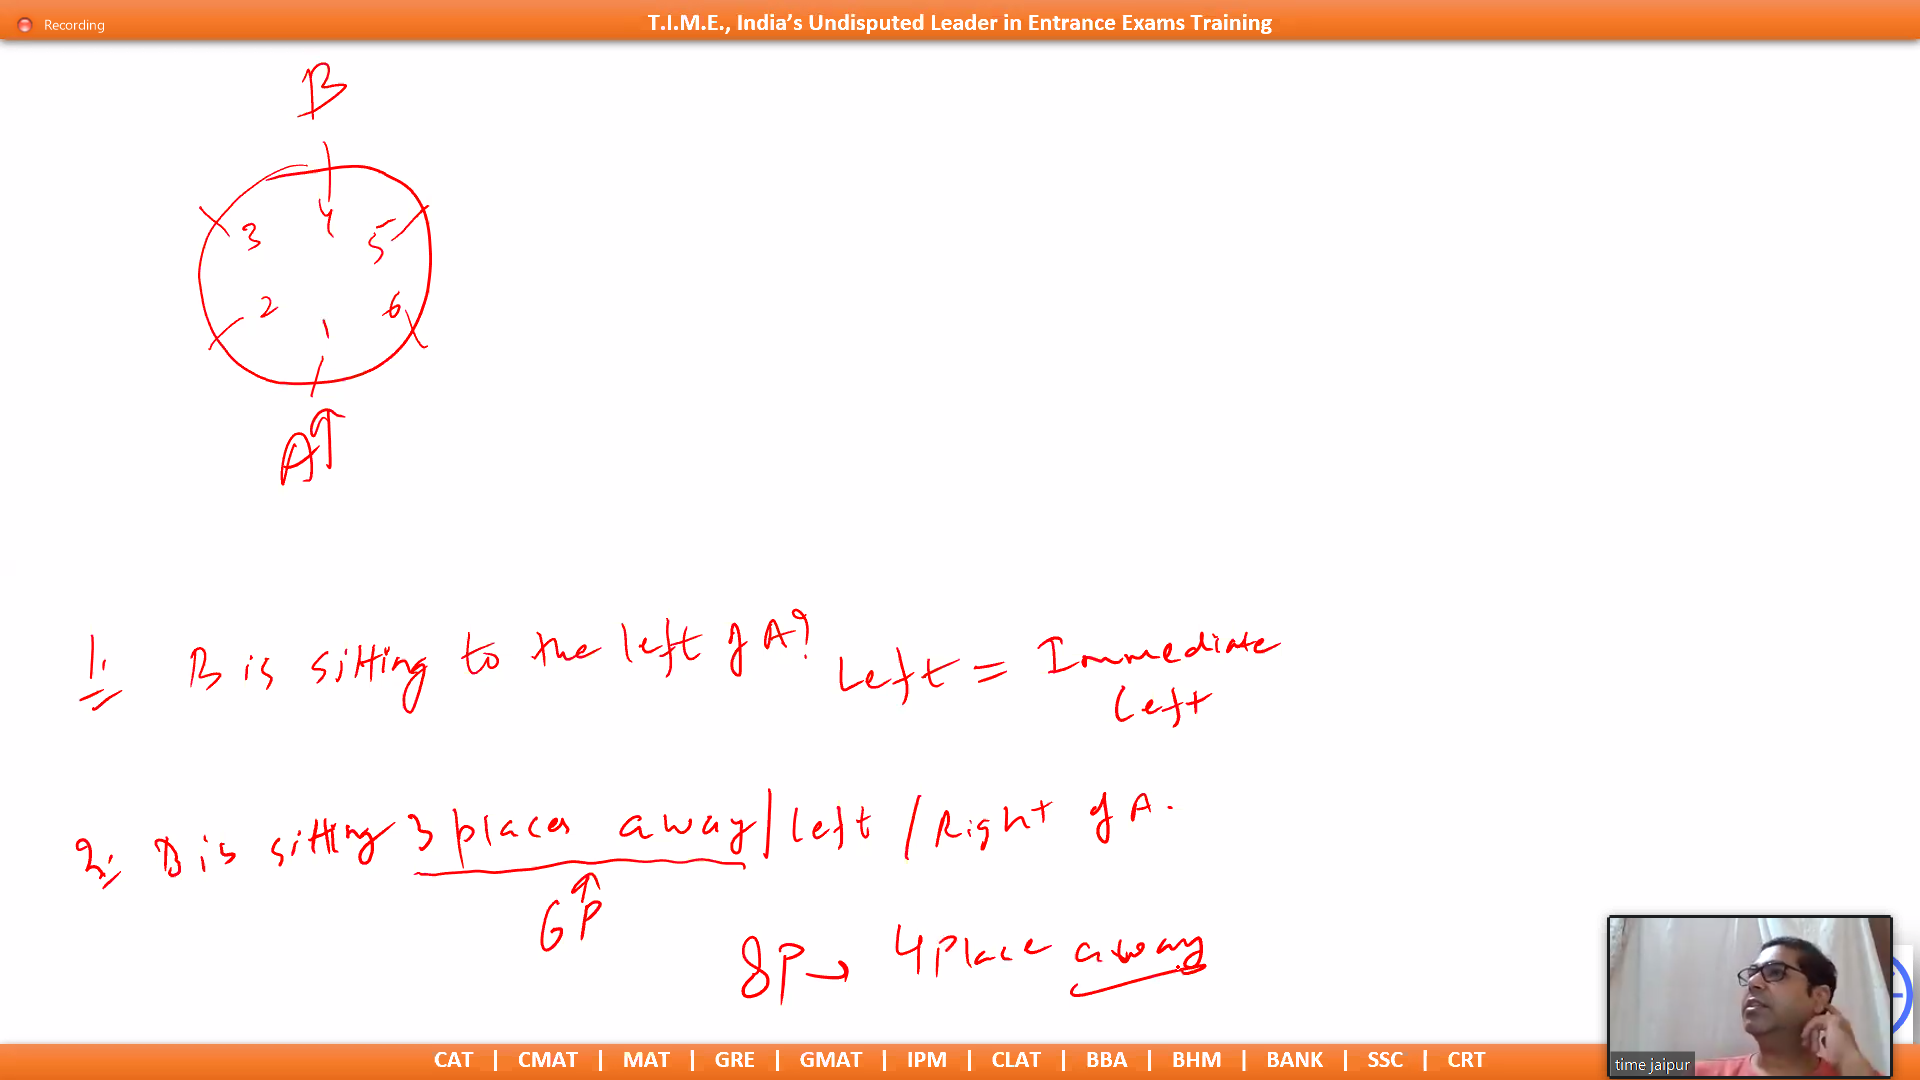 Recording
T.I.M.E., India’s Undisputed Leader in Entrance Exams Training
B
3 4 5
2 1 6
A↑
1. B is sitting to the left of A? Left = Immediate
Left
2. B is sitting 3 places away / left / Right of A.
6P
8P → 4 Place away
CAT | CMAT | MAT | GRE | GMAT | IPM | CLAT | BBA | BHM | BANK | SSC | CRT
time jaipur